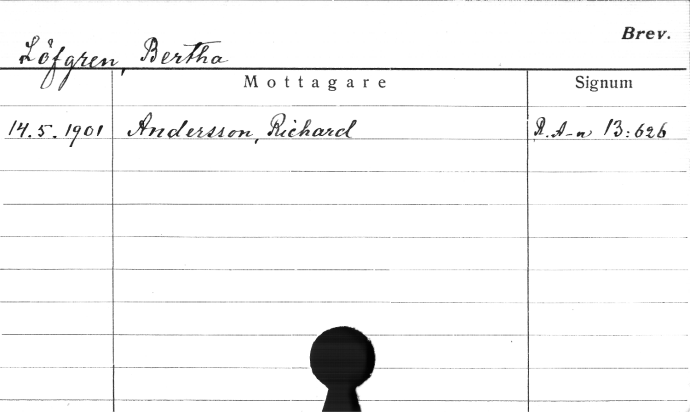 Brev.
Löfgren, Bertha
Mottagare Signum
14.5.1901 Andersson, Richard R. A-n 13:626